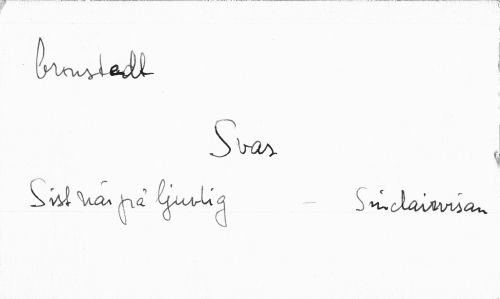 Cronstedt
Svar
Sist när på ljuvlig – Sinclairvisan